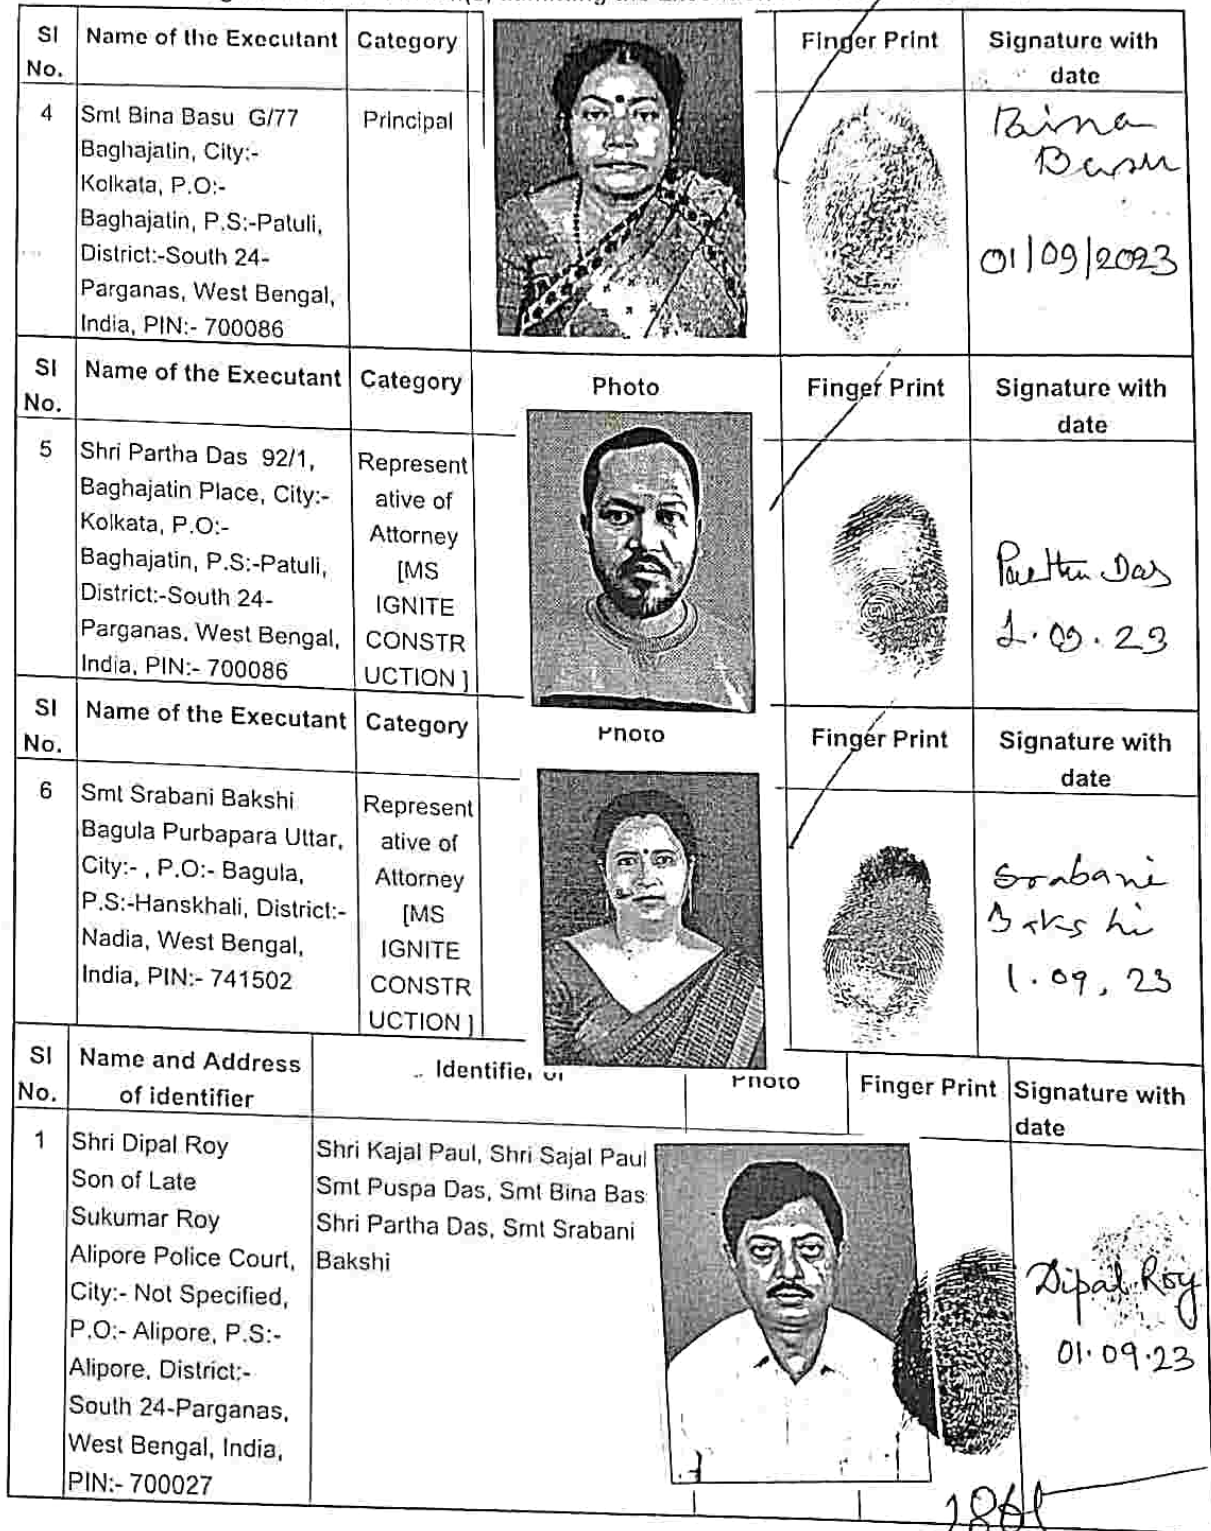 Sl No. Name of the Executant Category Finger Print Signature with date
4
Smt Bina Basu G/77
Baghajatin, City:-
Kolkata, P.O:-
Baghajatin, P.S:-Patuli,
District:-South 24-
Parganas, West Bengal,
India, PIN:- 700086
Principal
Bina
Basu
01/09/2023
Sl No. Name of the Executant Category Photo Finger Print Signature with date
5
Shri Partha Das 92/1,
Baghajatin Place, City:-
Kolkata, P.O:-
Baghajatin, P.S:-Patuli,
District:-South 24-
Parganas, West Bengal,
India, PIN:- 700086
Represent
ative of
Attorney
[MS
IGNITE
CONSTR
UCTION ]
Partha Das
1.09.23
Sl No. Name of the Executant Category Photo Finger Print Signature with date
6
Smt Srabani Bakshi
Bagula Purbapara Uttar,
City:- , P.O:- Bagula,
P.S:-Hanskhali, District:-
Nadia, West Bengal,
India, PIN:- 741502
Represent
ative of
Attorney
[MS
IGNITE
CONSTR
UCTION ]
Srabani
Bakshi
1.09,23
Sl No. Name and Address of identifier Identifier of Photo Finger Print Signature with date
1
Shri Dipal Roy
Son of Late
Sukumar Roy
Alipore Police Court,
City:- Not Specified,
P.O:- Alipore, P.S:-
Alipore, District:-
South 24-Parganas,
West Bengal, India,
PIN:- 700027
Shri Kajal Paul, Shri Sajal Paul
Smt Puspa Das, Smt Bina Bas
Shri Partha Das, Smt Srabani
Bakshi
Dipal Roy
01.09.23